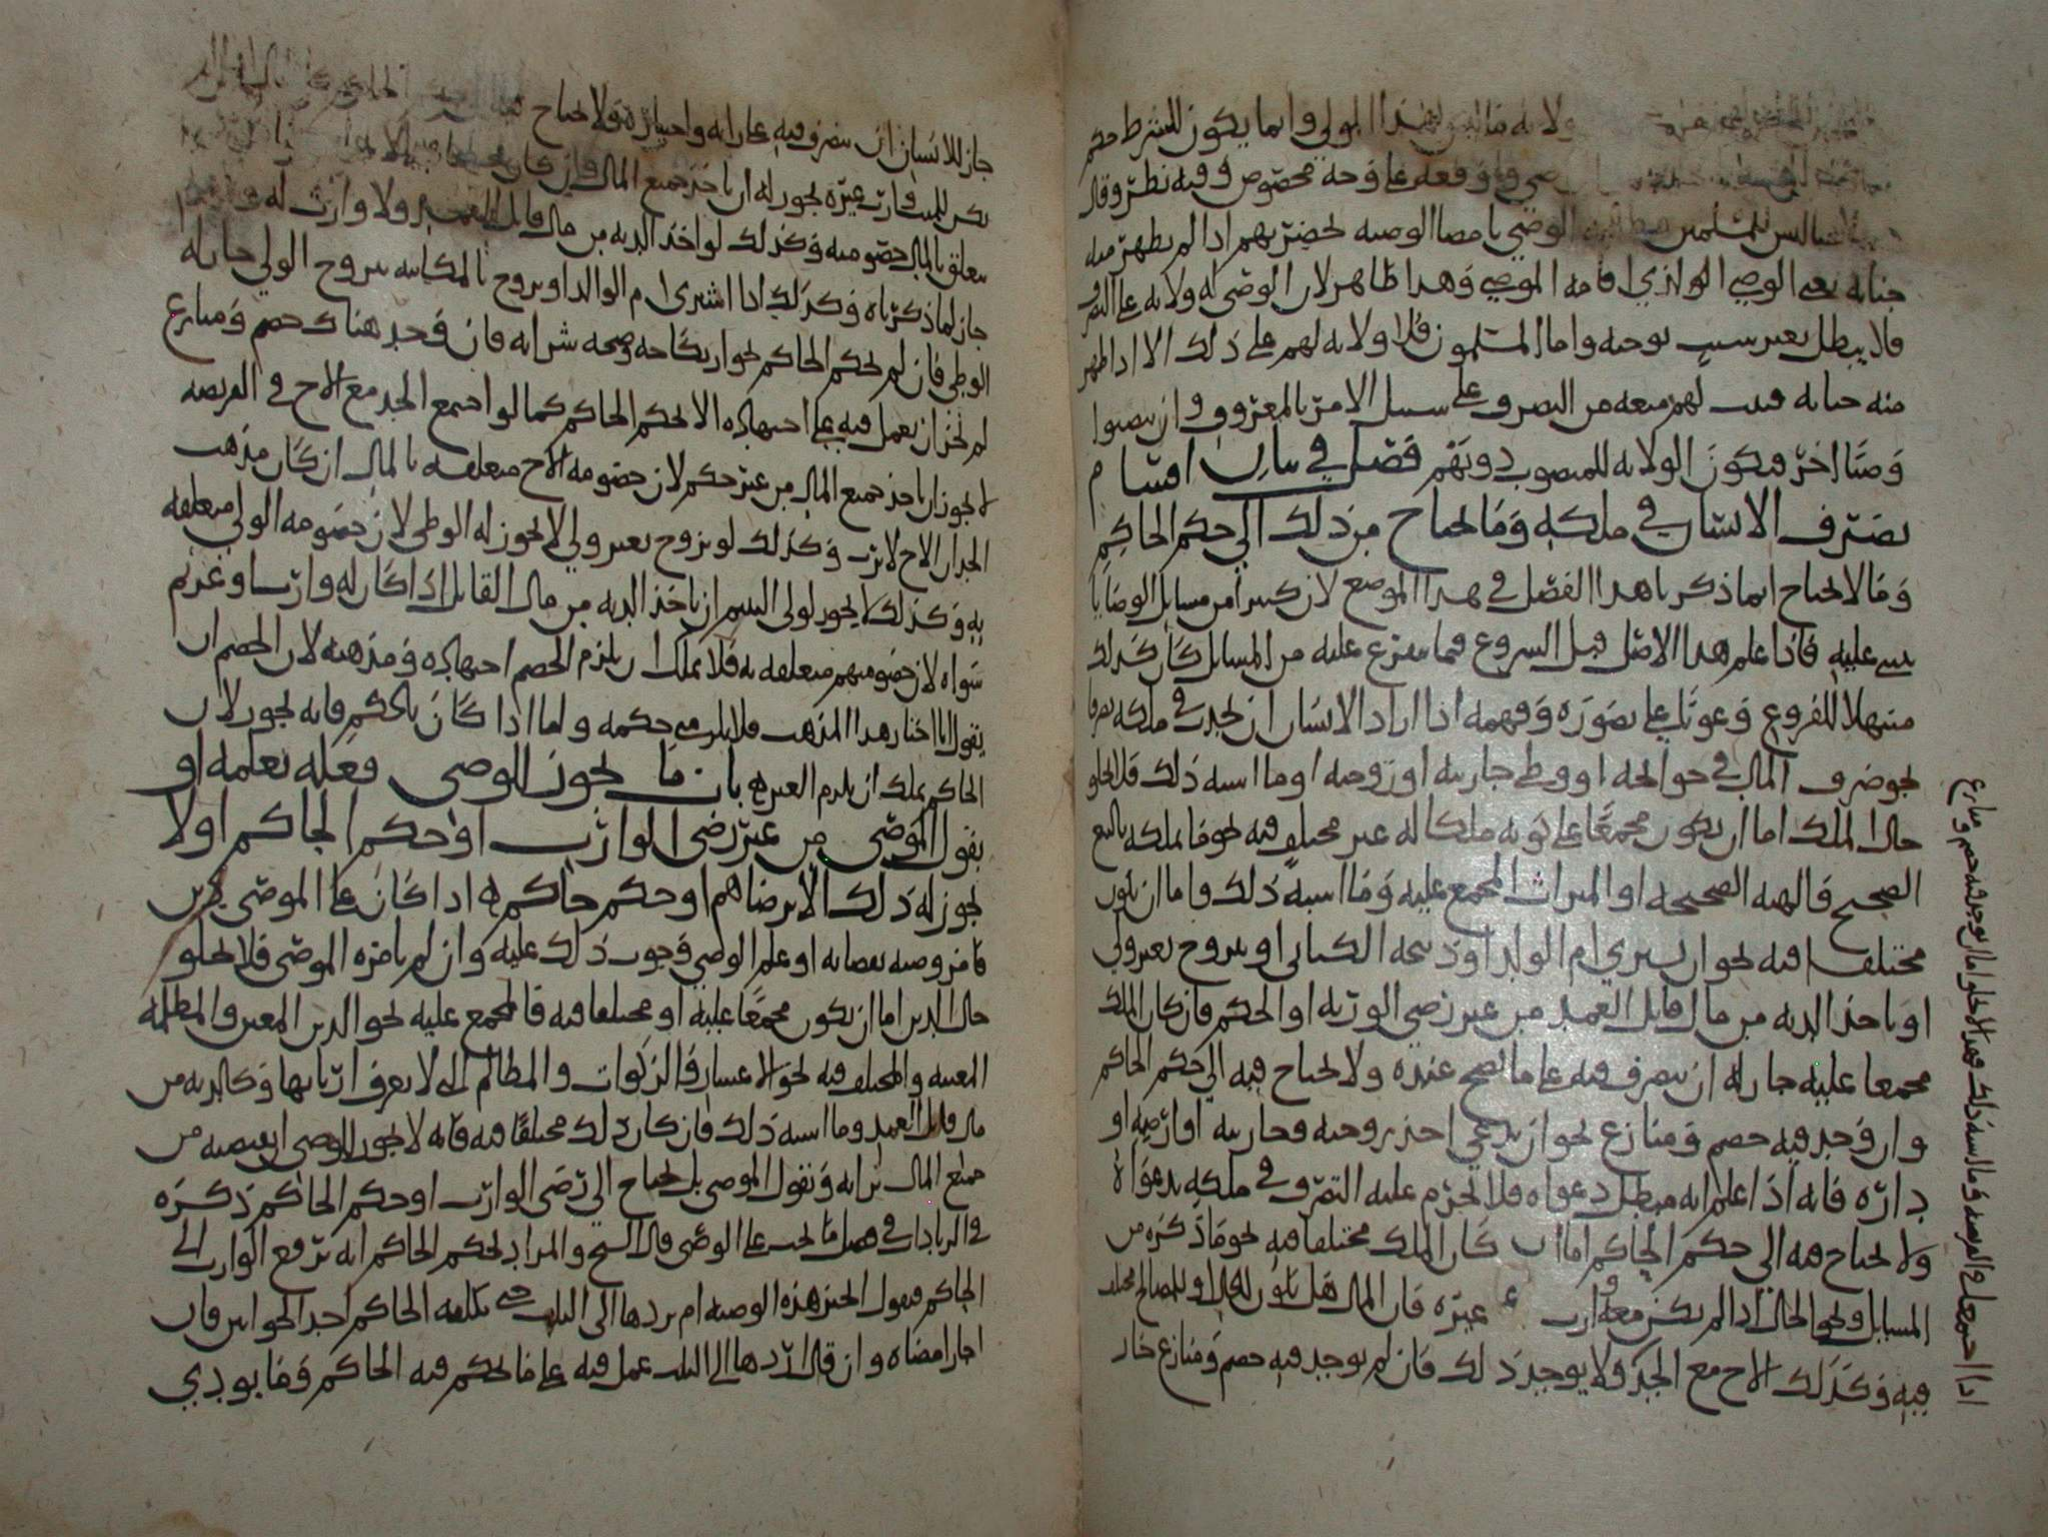 ولا نه ما لم هذا المولى وانما يكون للشرط حكم
على وجه مخصوص وفيه نظر وقال
ليس للمسلمين الوصي بامضا الوصيه لحضرتهم اذا لم يظهر منه
جنايه يعني الوصي الذي اقامه الموصي وهذا ظاهر لان الوصي له ولايه على التصرف
فلا يبطل بغير سبب يوجبه واما المسلمون فلا ولايه لهم على ذلك الا اذا ظهر
منه خيانه فيثبت لهم منعه من التصرف على سبيل الامر بالمعروف وان ينصبوا
وصيا اخر فيكون الولايه للمنصوب دونهم فصل في بيان اقسام
تصرف الانسان في ملكه وما يحتاج من ذلك الى حكم الحاكم
وما لا يحتاج انما ذكرنا هذا الفصل في هذا الموضع لان كثيرا من مسايل الوصايا
يبنى عليه فاذا علم هذا الاصل قبل الشروع فيما يتفرع عليه من المسايل كان كذلك
مسهلا للفروع وعونا على تصوره وفهمه اذا اراد الانسان ان يحدث في ملكه تصرفا
نحو صرف المال في حوايجه او وطي جاريته او زوجته او ما اشبه ذلك فلا يخلو
حال الملك اما ان يكون مجمعا على كونه ملكا له غير مختلف فيه نحو ما يملكه بالبيع
الصحيح والهبه الصحيحه او الميراث المجمع عليه وما اشبه ذلك واما ان يكون
مختلفا فيه نحو ان يشتري ام الولد او ذبيحه الكتابي او يتزوج بغير ولي
او ياخذ الديه من مال قاتل العمد من غير رضى الورثه او الحكم فان كان الملك
مجمعا عليه جاز له ان يتصرف فيه على ما يصح عنده ولا يحتاج فيه الى حكم الحاكم
وان وجد فيه خصم ومنازع نحو ان يدعي احد زوجته وجاريته او ارضه او
داره فانه اذا علم انه مبطل دعواه فلا يحرم عليه التصرف في ملكه بدعواه
ولا يحتاج فيه الى حكم الحاكم اما ان كان الملك مختلفا فيه نحو ما ذكره من
المسايل ونحو الخال اذا لم يكن معه وارث غيره فان المال هل يكون للخال او للمصالح مختلف
فيه وكذلك الاخ مع الجد ولا يوجد ذلك فان لم يوجد فيه خصم ومنازع جاز
اذا اجتمعا في الفريضه وما اشبه ذلك فهذا لا يخلو اما ان يوجد فيه خصم ومنازع
جاز للانسان ان يتصرف فيه على رايه واختياره ولا يحتاج
يكن للميت وارث غيره يجوز له ان ياخذ جميع المال وان كان
يتعلق بالمال خصومه وكذلك لو اخذ الديه من مال قاتل العمد ولا وارث له
جاز لما ذكرناه وكذلك اذا اشترى ام الولد او تزوج بالمكاتبه بتزويج الولي جاز له
الوطي فان لم يحكم الحاكم بجواز نكاحه وصحه شرايه فان وجد هناك خصم ومنازع
لم يجز ان يعمل فيه على اجتهاده الا بحكم الحاكم كما لو اجتمع الجد مع الاخ في الفريضه
لا يجوز ان ياخذ جميع المال من غير حكم لان خصومه الاخ متعلقه بالمال ان كان مذهب
الجد ان الاخ لا يرث وكذلك لو تزوج بغير ولي لا يجوز له الوطي لان خصومه الولي متعلقه
به وكذلك لا يجوز لولي اليتيم ان ياخذ الديه من مال القاتل اذا كان له وارثا وغريم
سواه لان خصومتهم متعلقه به فلا يملك ان يلزم الخصم اجتهاده ومذهبه لان الخصم ان
يقول انا اختار هذا المذهب فلا يلزمني حكمه واما اذا كان بالحكم فانه يجوز لان
الحاكم يملك ان يلزم الغير باب ما يجوز للوصي فعله بعلمه او
بقول الموصي من غير رضى الوارث او حكم الحاكم او لا
يجوز له ذلك الا برضاهم او حكم حاكم اذا كان على الموصي دين
فامر وصيه بقضايه او علم الوصي وجوب ذلك عليه وان لم يامره الموصي فلا يخلو
حال الدين اما ان يكون مجمعا عليه او مختلفا فيه فالمجمع عليه نحو الدين المعين والمظلمه
المعينه والمختلف فيه نحو الاعشار والزكوات والمظالم التي لا يعرف اربابها وكالديه من
مال قاتل العمد وما اشبه ذلك فان كان ذلك مختلفا فيه فانه لا يجوز للوصي ان يقضيه من
جميع المال برايه وبقول الموصي بل يحتاج الى رضى الوارث او حكم الحاكم ذكره
في الزيادات في فصل ما يجب على الوصي قال الشيخ والمراد بحكم الحاكم انه ترفع الوارث الى
الحاكم فيقول اتجيز هذه الوصيه ام تردها الى الثلث حتى يكلفه الحاكم احد الجوابين فان
اجاز امضاه وان قال اردها الى الثلث عمل فيه على ما يحكم فيه الحاكم وما يودي